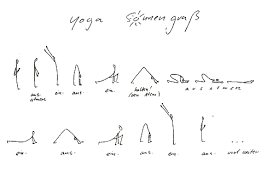 yoga Sonnengruß
aus- ein- aus- ein- halten! aus atmen
atmen (den Atem)
ein- aus- ein- aus- ein- aus- und weiter ...